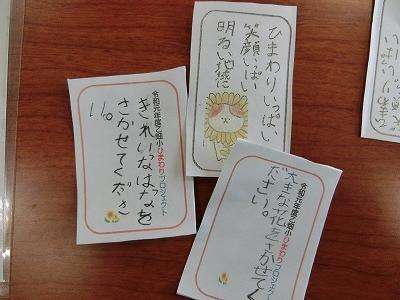 ひまわりいっぱい、
笑顔いっぱい
明るい地域に
令和元年度乙畑小ひまわりプロジェクト
きれいなはなを
さかせてくださ
い。
令和元年度乙畑小ひまわりプロジェクト
大きな花をさかせてく
ださい。